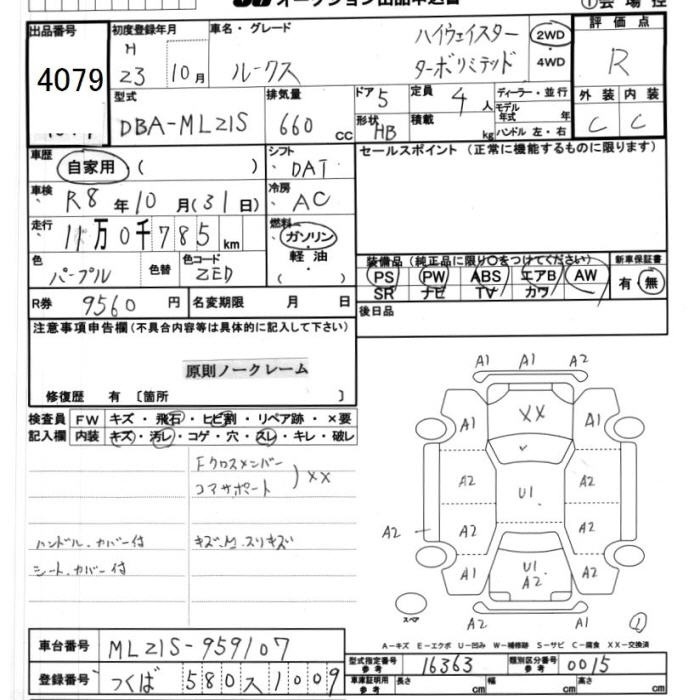 オークション出品申込書
出品番号 4079
初度登録年月 H 23 10月
車名・グレード ルークス ハイウェイスター ターボリミテッド
2WD ・ 4WD
評価点 R
外装 C 内装 C
型式 DBA-ML21S
排気量 660 CC
ドア 5 形状 HB
定員 4人 積載 kg
ディーラー・並行
モデル年式 年
ハンドル 左・右
車歴 自家用 ( )
シフト DAT
車検 R8年10月(31日)
冷房 AC
走行 11万0千785km
燃料 ガソリン 軽油 ( )
色 パープル 色替 色コード ZED
R券 9560円 名変期限 月 日
セールスポイント(正常に機能するものに限ります)
装備品(純正品に限り○をつけてください)
PS PW ABS エアB AW
SR ナビ TV カワ
新車保証書 有・無
後日品
注意事項申告欄(不具合内容等は具体的に記入して下さい)
原則ノークレーム
修復歴 有 〔箇所 〕
検査員記入欄
FW キズ・飛石・ヒビ割・リペア跡・×要
内装 キズ・汚レ・コゲ・穴・スレ・キレ・破レ
Fクロスメンバー
コアサポート ) XX
ハンドル.カバー付 キズ.M.スリキズ
シート.カバー付
A1 A1 A2
A1 XX A1
A2 U1 A2
A2 A2 A2 A2
A1 U1 A2 A2
スペア A2 A1 ①
A-キズ E-エクボ U-凹み W-補修跡 S-サビ C-腐食 XX-交換済
車台番号 ML21S-959107
登録番号 つくば 580 ス 1009
型式指定番号 参考 16363 類別区分番号 参考 0015
車庫証明用 参考 長さ cm 幅 cm 高さ cm